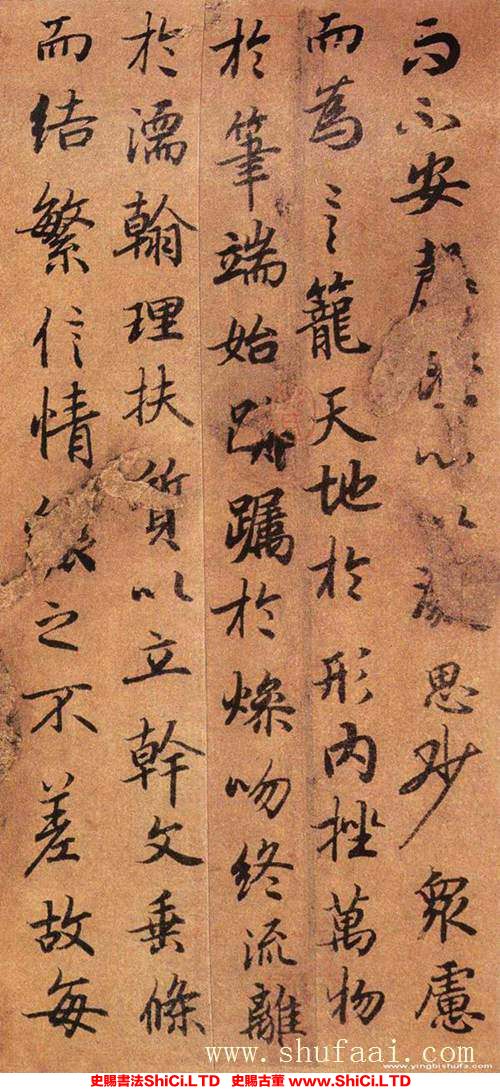 而不安罄心以思眇眾慮
而為言籠天地於形內挫萬物
於筆端始躑躅於燥吻終流離
於濡翰理扶質以立幹文垂條
而結繁信情貌之不差故每
www.shufaai.com
www.yingbishufa.com
史賜書法ShiCi.LTD 史賜古董 www.ShiCi.LTD